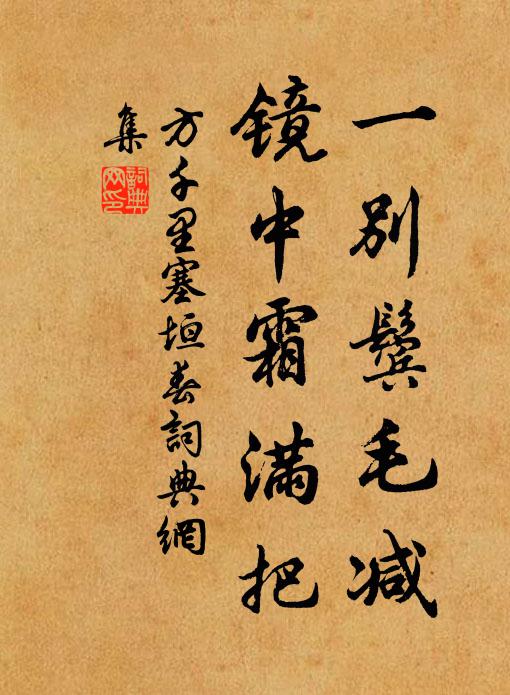 一别鬓毛减
镜中霜满把
方千里塞垣春詞典網
集
詞典
网印